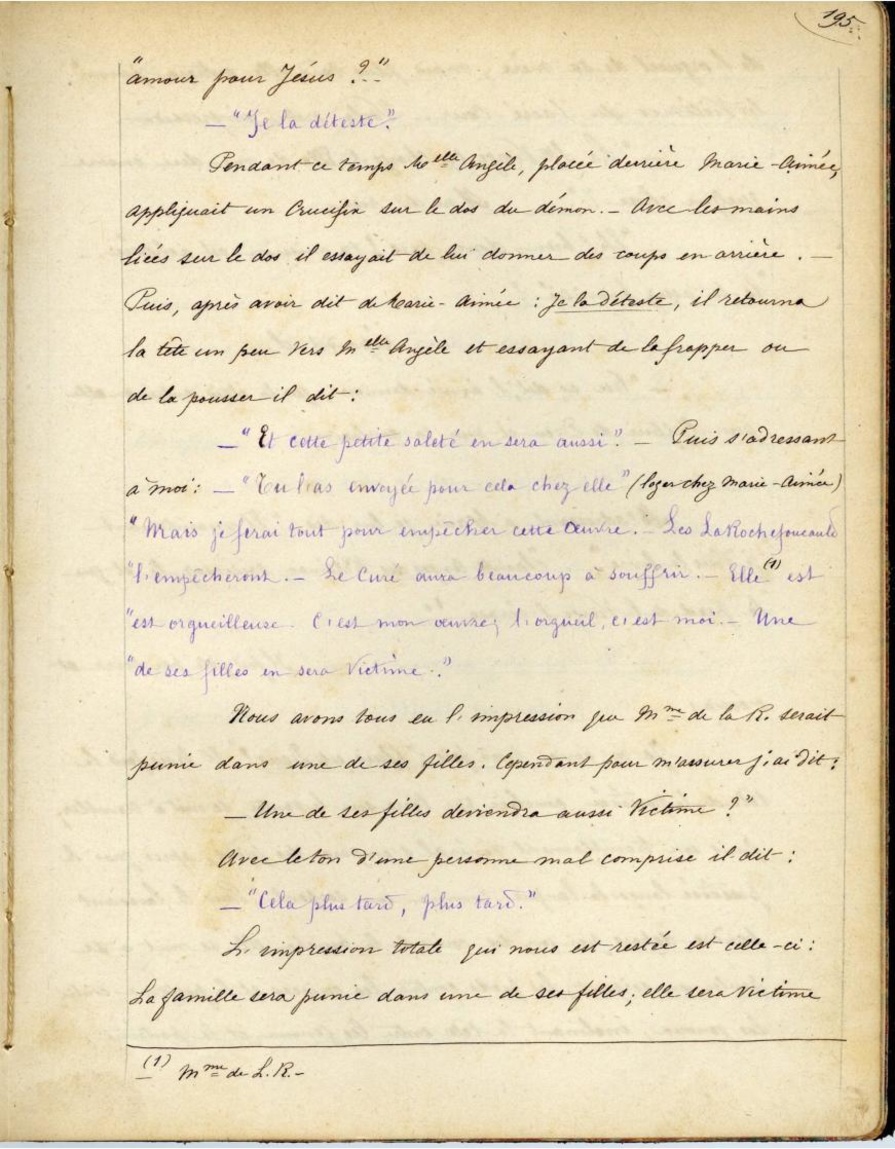 195.
"amour pour Jésus ?"
— "Je la déteste."
Pendant ce temps Melle Angèle, placée derrière Marie-Aimée,
appliquait un Crucifix sur le dos du démon. — Avec les mains
liées sur le dos il essayait de lui donner des coups en arrière. —
Puis, après avoir dit de Marie-Aimée : Je la déteste, il retourna
la tête un peu vers Melle Angèle et essayant de la frapper ou
de la pousser il dit :
— "Et cette petite saleté en sera aussi". — Puis s'adressant
à moi : — "Tu l'as envoyée pour cela chez elle" (loger chez Marie-Aimée)
"Mais je ferai tout pour empêcher cette Œuvre. — Les LaRochefoucauld
"l'empêcheront. — Le Curé aura beaucoup à souffrir. — Elle (1) est
"est orgueilleuse. C'est mon œuvre; l'orgueil, c'est moi. — Une
"de ses filles en sera Victime."
Nous avons tous eu l'impression que Mme de la R. serait
punie dans une de ses filles. Cependant pour m'assurer j'ai dit :
— Une de ses filles deviendra aussi Victime ?"
Avec le ton d'une personne mal comprise il dit :
— "Cela plus tard, plus tard."
L'impression totale qui nous est restée est celle-ci :
La famille sera punie dans une de ses filles; elle sera Victime
(1) Mme de L. R. —